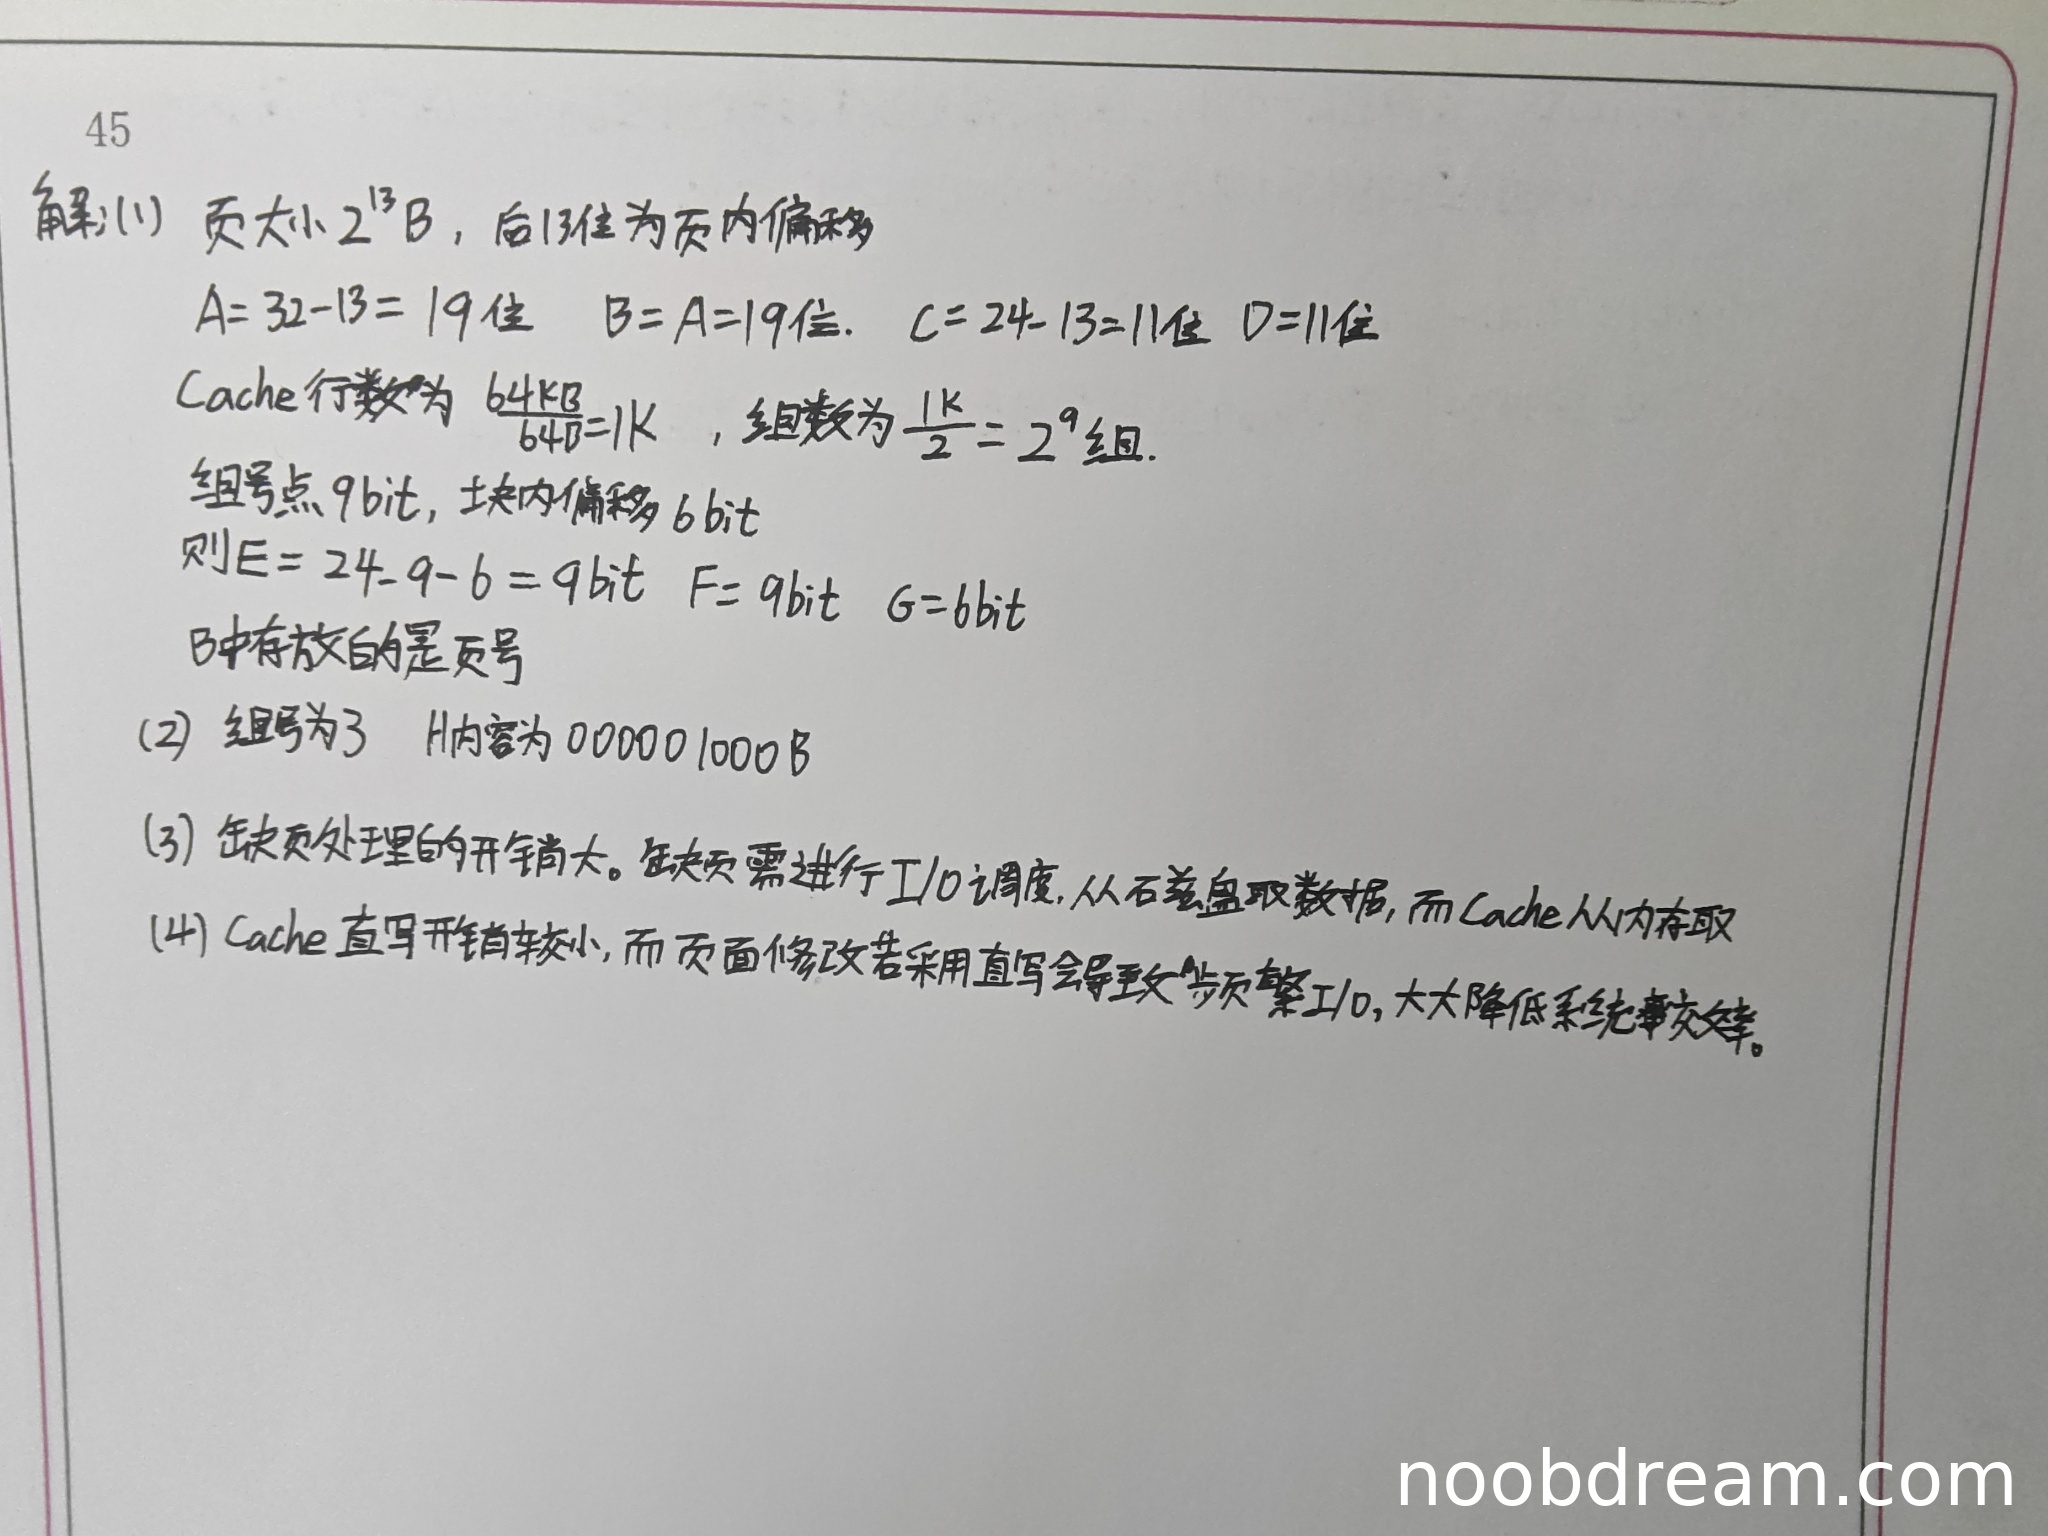 45
解:(1) 页大小2^13B, 后13位为页内偏移
A=32-13=19位 B=A=19位. C=24-13=11位 D=11位
Cache行数为 64KB/64B=1K , 组数为 1K/2 = 2^9组.
组号占9bit, 块内偏移6bit
则E=24-9-6=9bit F=9bit G=6bit
B中存放的是页号
(2) 组号为3 H内容为000001000B
(3) 缺页处理的开销大。缺页需进行I/O调度,从磁盘取数据,而Cache从内存取
(4) Cache直写开销较小,而页面修改若采用直写会导致频繁I/O,大大降低系统效率。
noobdream.com